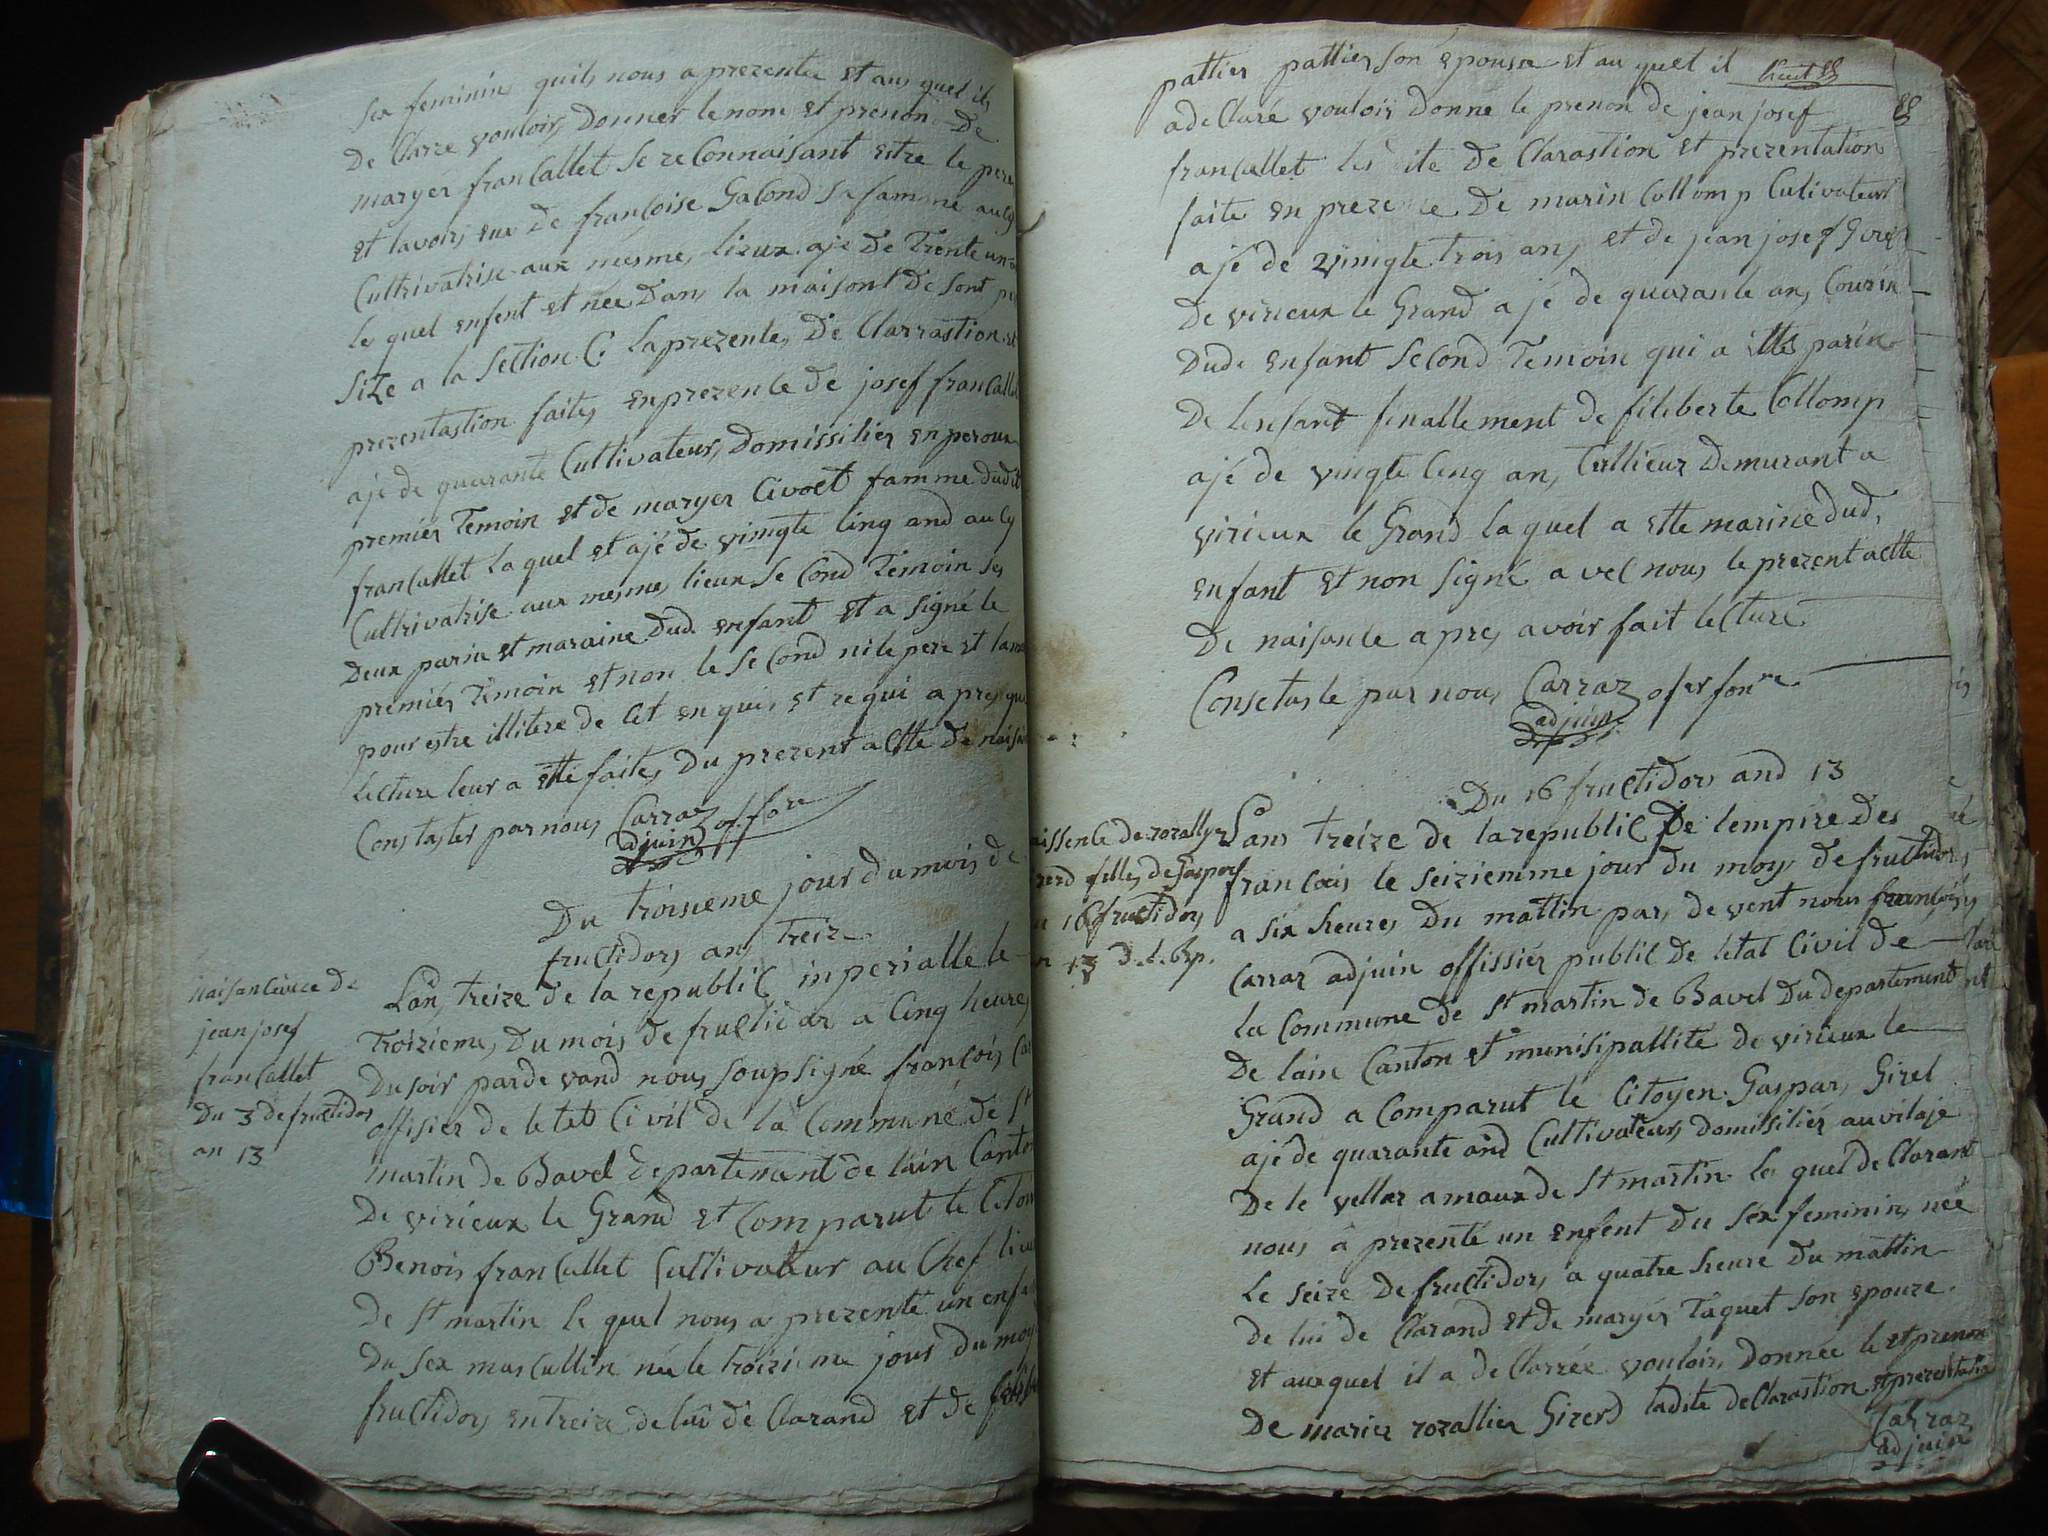 sex feminin quils nous a prezentée et aus quel ils
De Clarre vouloir Donner le nom et prenon De
maryer franCallet se reConnaisant estre le pere
et lavoir eux De françoise GaCond sa famme
Cultrivatrise aux mesme lieux aje De Trente un
le quel enfent et née Dans la maisont De sont
size a la Section C. la prezente De Clarrastion et
prezentastion faites enprezente de josef franCallet
aje de quarante Cultivateur Domissilier en
premier Temoin et de maryer Civoct famme dudit
franCallet laquel et ajé de vinigte Cinq and au
Cultrivatrise aux mesmes lieux se Cond Temoin ses
Deux parin et maraine Dud. enfant et a signé le
premier Temoin et non le se Cond ni le pere et la
pour estre illitere de Cet en quis et requi a pres que
lecture leur a etté faites Du prezent actte De
Constaster par nous Carraz of. fore
adjuin
Du troisieme jour du mois de
fructidors an treiz
naisanCeuce De
jean josef
franCallet
Du 3 de fructidor
an 13
Lan treize de la republiC inperialle le
Troizieme Du mois de fructidor a Cinq heures
Du soir parde vand nous soupsigné françois
offisier de letat Civil de la Commune de St
martin de Bavel departement de lain Canton
De virieux le Grand et Comparut le
Benois franCallet Cultivateur au Chef lieu
de St martin le quel nous a prezenté un enfant
Du sex masCullin née le troizieme jour Du moy
fructidors entreize de lui de Clarand et de
pattier pattier son epousa et au quel il
huit 88
88
a de Claré vouloir Donne le prenon de jean josef
franCallet les ite de Clarastion et prezentation
faite en preze e De marin Collomp Cultivateur
ajé de vinigte trois an et de jean josef
De virieux le Grand ajé de quarante an Couzin
Dude enfant seCond Temoin qui a ettes parin
De lenfant finallement de filiberte Collomp
ajé de vingte Cinq an Tallieur Demurant a
virieux le Grand la quel a ette marine Dud.
enfant et non signé a vec nous le prezent actte
De naisanse apres avoir fait leCture
Consctaste par nous Carraz ofser fonre
adjuin
Du 16 fructidors and 13
aissence de rozallyer
rerd filles de Gaspard
16 fructidor
13 D. L. Rp.
Lans treize de larepubliC De lempire Des
françois le seiziemme jour du moys de fructidors
a six heures Du mattin par de vent nous françois
Carraz adjuin offissier publiC de letat Civil de
la Commune de St martin de Bavel Du departement
De lain Canton et munisipallite de virieux le
Grand a Comparut le Citoyen Gaspar Girel
ajé de quarante and Cultivateur domissilier au vilaje
De le vellar amaux de St martin le quel de Clarant
nous a prezenté un enfent Du sex feminin née
le seize De fructidors a quatre heure Du mattin
de lui de Clarand et de maryer Taquet son epouze.
et auxquel il a de Clarrée vouloir Donnée le et prenon
De marier rozallier Girerd ladite deClarastion et prezentation
Carraz
adjuin